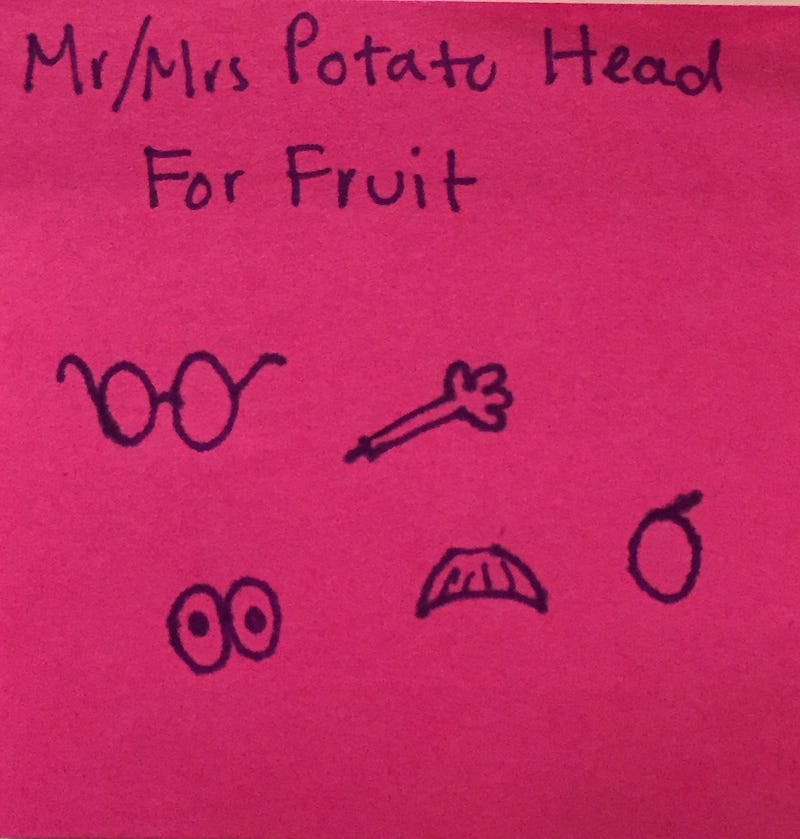 Mr/Mrs Potato Head
For Fruit